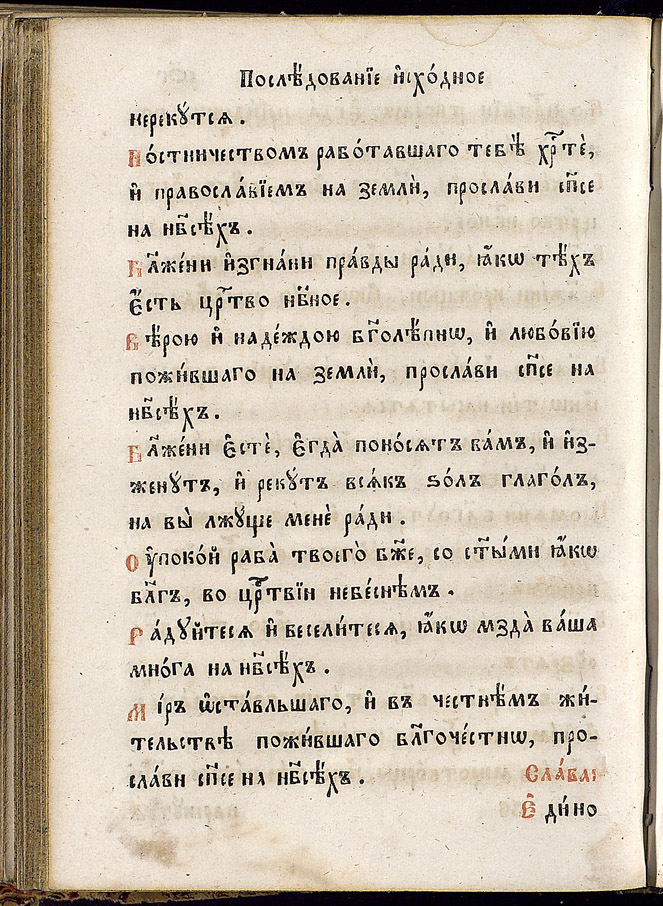 Послѣ́дованїе и҆схо́дное
нерекꙋ́тсѧ.
Постничествомъ рабо́тавшаго тебѣ̀ хрⷭ҇тѐ,
и҆ правосла́вїемъ на землѝ, просла́ви сп҃се
на нб҃сѣ́хъ.
Бл҃же́ни и҆згна́ни пра́вды ра́ди, ꙗ҆́кѡ тѣ́хъ
є҆́сть црⷭ҇тво нбⷭ҇ное.
Вѣ́рою и҆ наде́ждою бг҃олѣ́пнѡ, и҆ любо́вїю
пожи́вшаго на землѝ, просла́ви сп҃се на
нб҃сѣ́хъ.
Бл҃же́ни є҆стѐ, є҆гда̀ поно́сѧтъ ва́мъ, и҆ и҆з-
женꙋ́тъ, и҆ рекꙋ́тъ всѧ́къ ѕо́лъ глаго́лъ,
на вы̀ лжꙋ́ще менѐ ра́ди.
Оу҆поко́й раба̀ твоего̀ бж҃е, со ст҃ы́ми ꙗ҆́кѡ
бл҃гъ, во црⷭ҇твїи небе́снѣмъ.
Ра́дꙋйтесѧ и҆ весели́тесѧ, ꙗ҆́кѡ мзда̀ ва́ша
мно́га на нб҃сѣ́хъ.
Мі́ръ ѡ҆ста́вльшаго, и҆ въ честнѣ́мъ жи́-
тельствѣ пожи́вшаго бл҃гоче́стнѡ, про-
сла́ви сп҃се на нб҃сѣ́хъ. Сла́ва:
Є҆ди́но